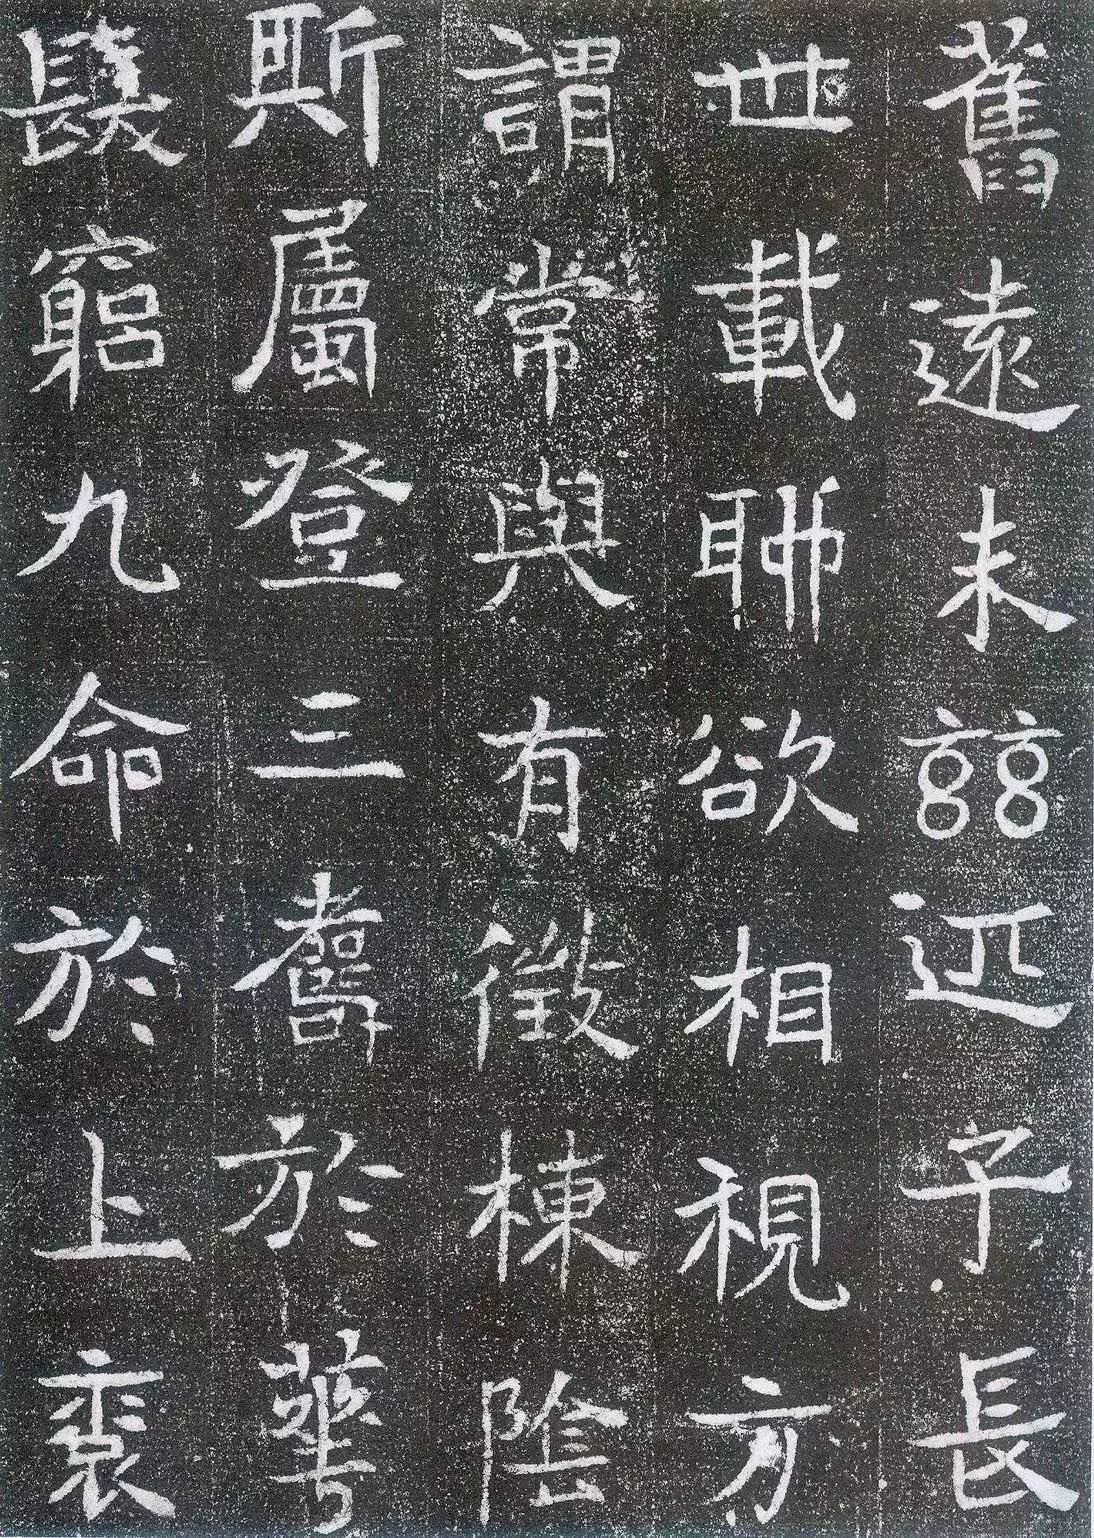 舊遠未兹近子長
世載聊欲相視方
謂常與有徵棟陰
斯屬登三壽於華
髮窮九命於上袞